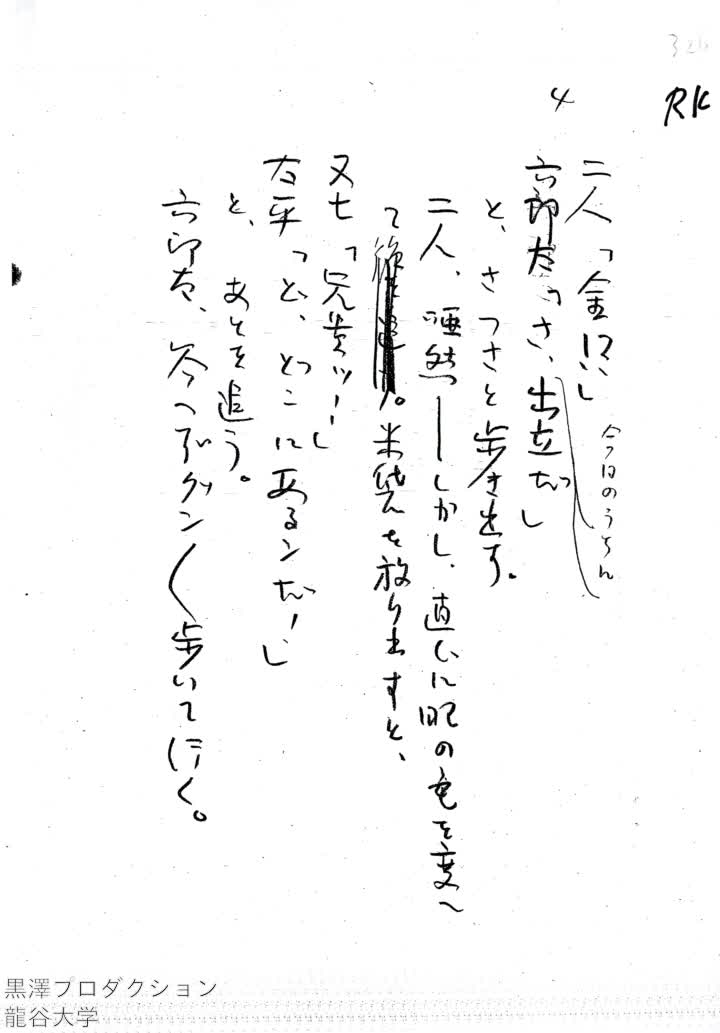 RK
4
二人「金!?」
今日のうちん
六郎太「さ、出立だ」
と、さっさと歩き出す。
二人、唖然――しかし、直ぐに眼の色を変へ
て。米袋を放り出すと、
又七「兄貴ッ!」
太平「ど、どこにあるンだ!」
と、あとを追う。
六郎太、今へグングン歩いて行く。
黒澤プロダクション
龍谷大学